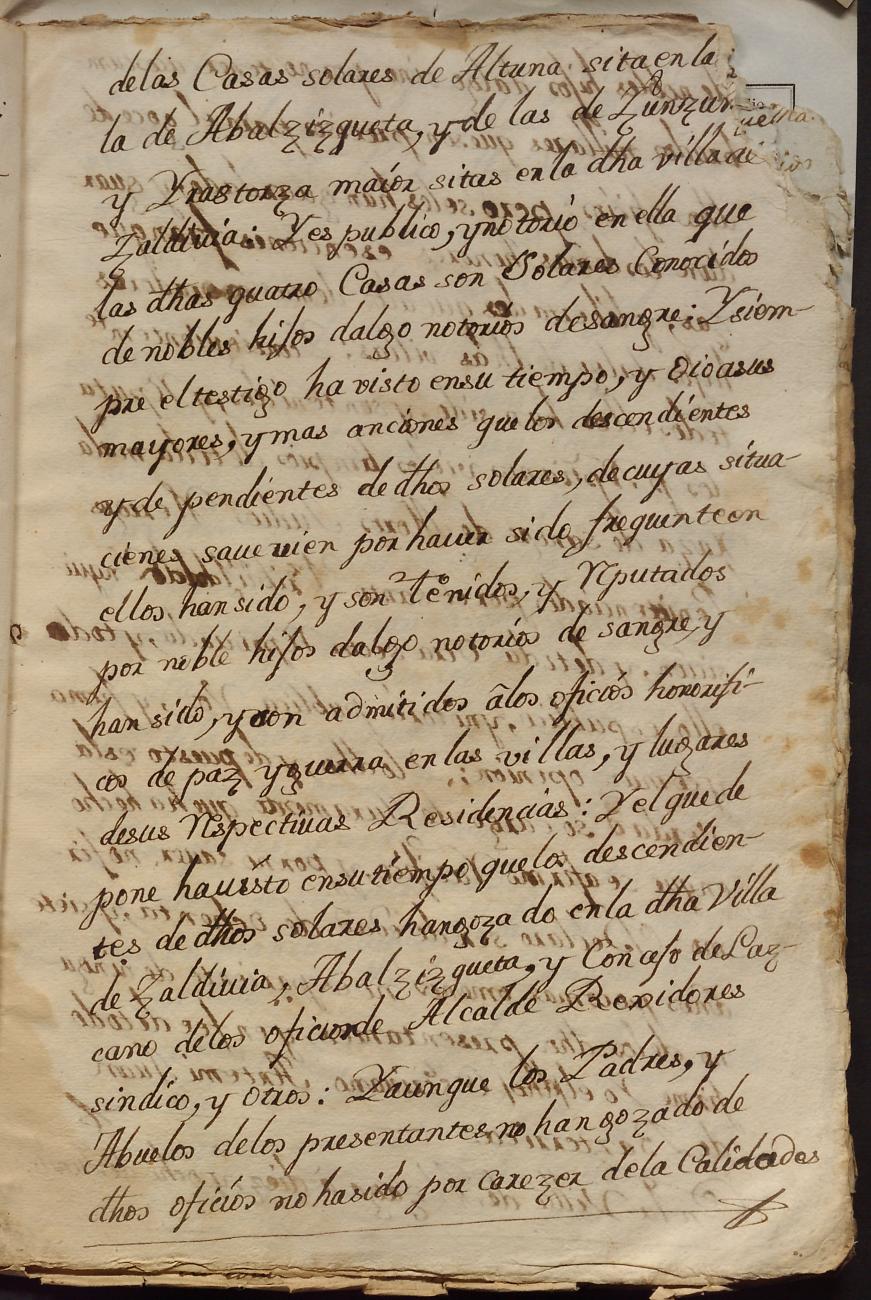 delas Casas solares de Altuna sita en la
la de Abalzizqueta, y de las de Zunzun-
y Yrastorza maior sitas en la dha villa de
Zaldivia: Y es publico, y notorio en ella que
las dhas quatro Casas son Solares Conocidos
de nobles hijos dalgo notorios de sangre: Y siem-
pre el testigo ha visto en su tiempo, y oio a sus
mayores, y mas anciones que los descendientes
y de pendientes de dhos solares, de cuyas situa-
ciones saue uien por hauer sido frequente en
ellos, han sido, y son tenidos, y Rputados
por noble hijos dalgo notorios de sangre, y
han sido, y son admitidos âlos oficios honorifi-
cos de paz y guerra en las villas, y lugares
desus Rspectiuas Residencias: Y el que de
pone ha uisto en su tiempo que los descendien-
tes de dhos solares han gozado en la dha Villa
de Zaldiuia, Abalzizqueta, y Concejo de Laz-
cano delos oficios de Alcalde Rexidores
sindico, y otros: Y aunque los Padres, y
Abuelos delos presentantes no han gozado de
dhos oficios no ha sido por carezer dela Calidades